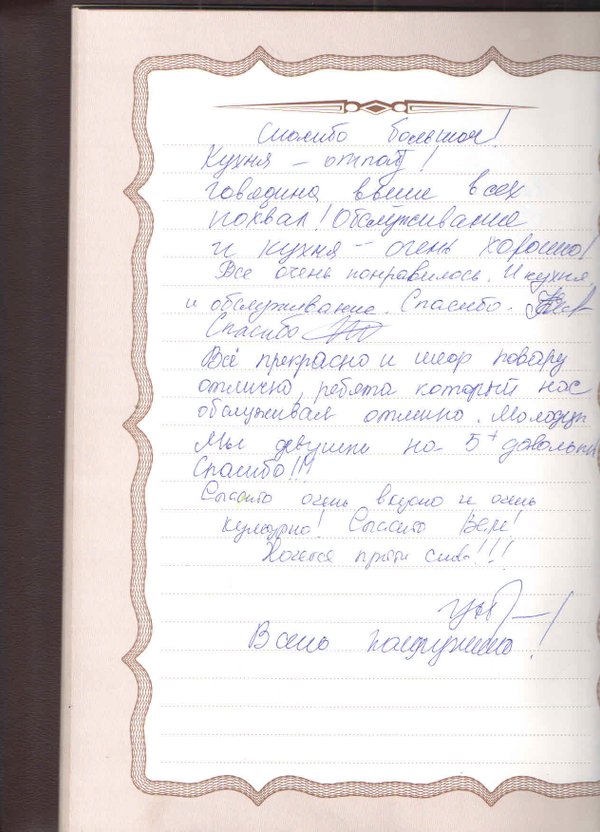 Спасибо большое!
Кухня – отпад!
говядина выше всех
похвал! Обслуживание
и кухня – очень хорошо!
Все очень понравилось. И кухня,
и обслуживание. Спасибо.
Спасибо
Всё прекрасно и шеф повару
отлично, ребята который нас
обслуживал отлично. Молодцы
Мы девушки на 5+ довольны
Спасибо!!!
Спасибо очень вкусно и очень
культурно! Спасибо Вам!
Хочется прийти снова!!!
Всего